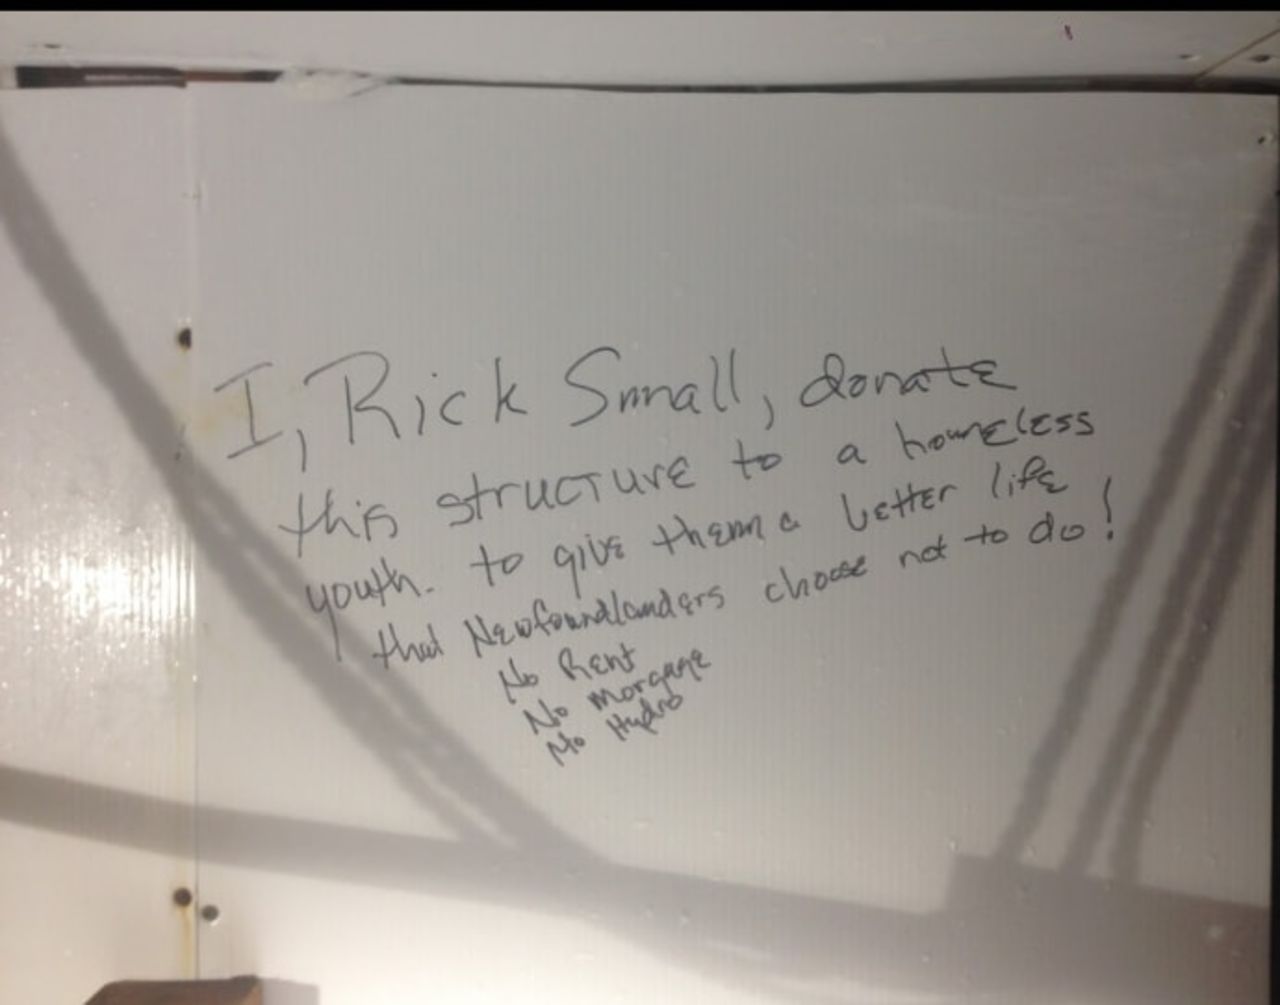 I, Rick Small, donate
this structure to a homeless
youth. to give them a better life
that Newfoundlanders choose not to do!
No Rent
No morgage
No Hydro